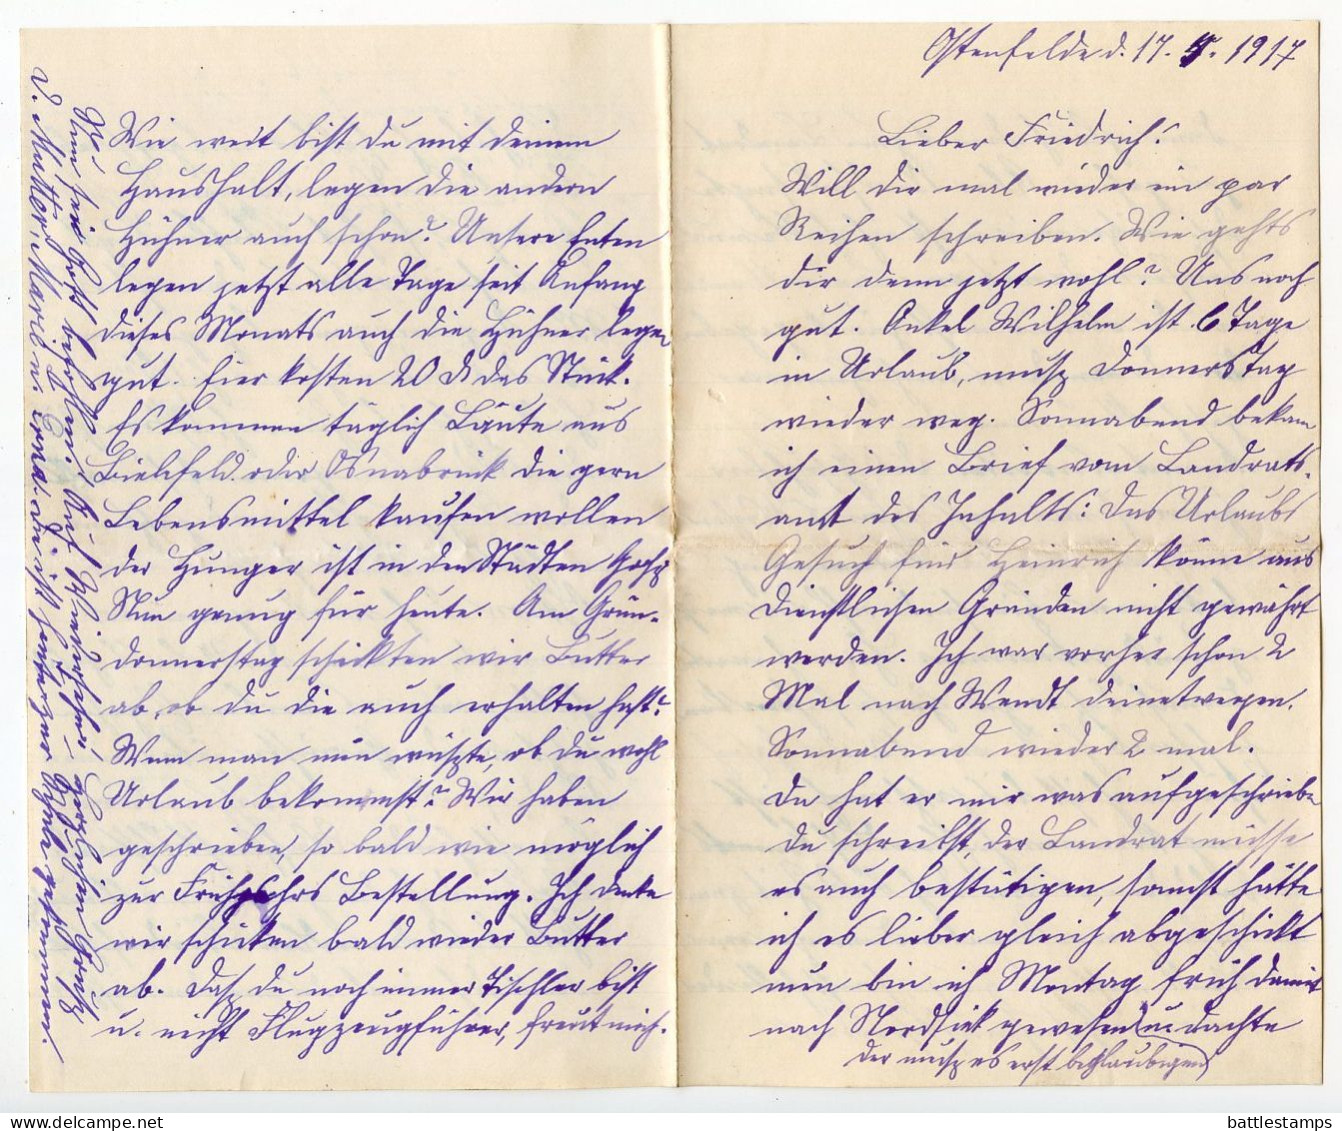 Ostenfelde d. 17. 4. 1917
Lieber Friedrich!
Will dir mal wieder ein par
Reihen schreiben. Wie gehts
dir denn jetzt wohl? Uns noch
gut. Onkel Wilhelm ist 6 Tage
in Urlaub, musz Donnerstag
wieder weg. Sonnabend bekam
ich einen Brief vom Landrats-
amt des Inhalts: Das Urlaubs
Gesuch für Heinrich könne aus
dienstlichen Gründen nicht gewährt
werden. Ich war vorher schon 2
Mal nach Wendt deinetwegen.
Sonnabend wieder 2 mal.
Da hat er mir was aufgeschrieben
du schreibst, der Landrat müsse
es auch bestätigen, sonst hätte
ich es lieber gleich abgeschickt
nun bin ich Montag früh damit
nach Nordsiek gewesen (u. dachte
der musz es erst beglaubigen)
Wie weit bist du mit deinem
Haushalt, legen die andern
Hühner auch schon? Unsere Enten
legen jetzt alle Tage seit Anfang
dieses Monats auch die Hühner legen
gut. Eier kosten 20 d das Stück.
Es kommen täglich Läute aus
Bielefeld oder Osnabrück die gern
Lebensmittel kaufen wollen
der Hunger ist in den Städten Grosz
Nun genug für heute. Am Grün-
donnerstag schickten wir Butter
ab, ob du die auch erhalten hast?
Wenn man nun wüszte, ob du wohl
Urlaub bekommst? Wir haben
geschrieben, so bald wie möglich
zur Frühjahrs Bestellung. Ich denke
wir schicken bald wieder Butter
ab. Dasz du noch immer Tischler bist
u. nicht Flugzeugführer, freut mich.
Nun sei Gott befohlen. Auf Wiedersehn! Herzlichen Grusz
d. Mutter, Marie u. Erna.
battlestamps